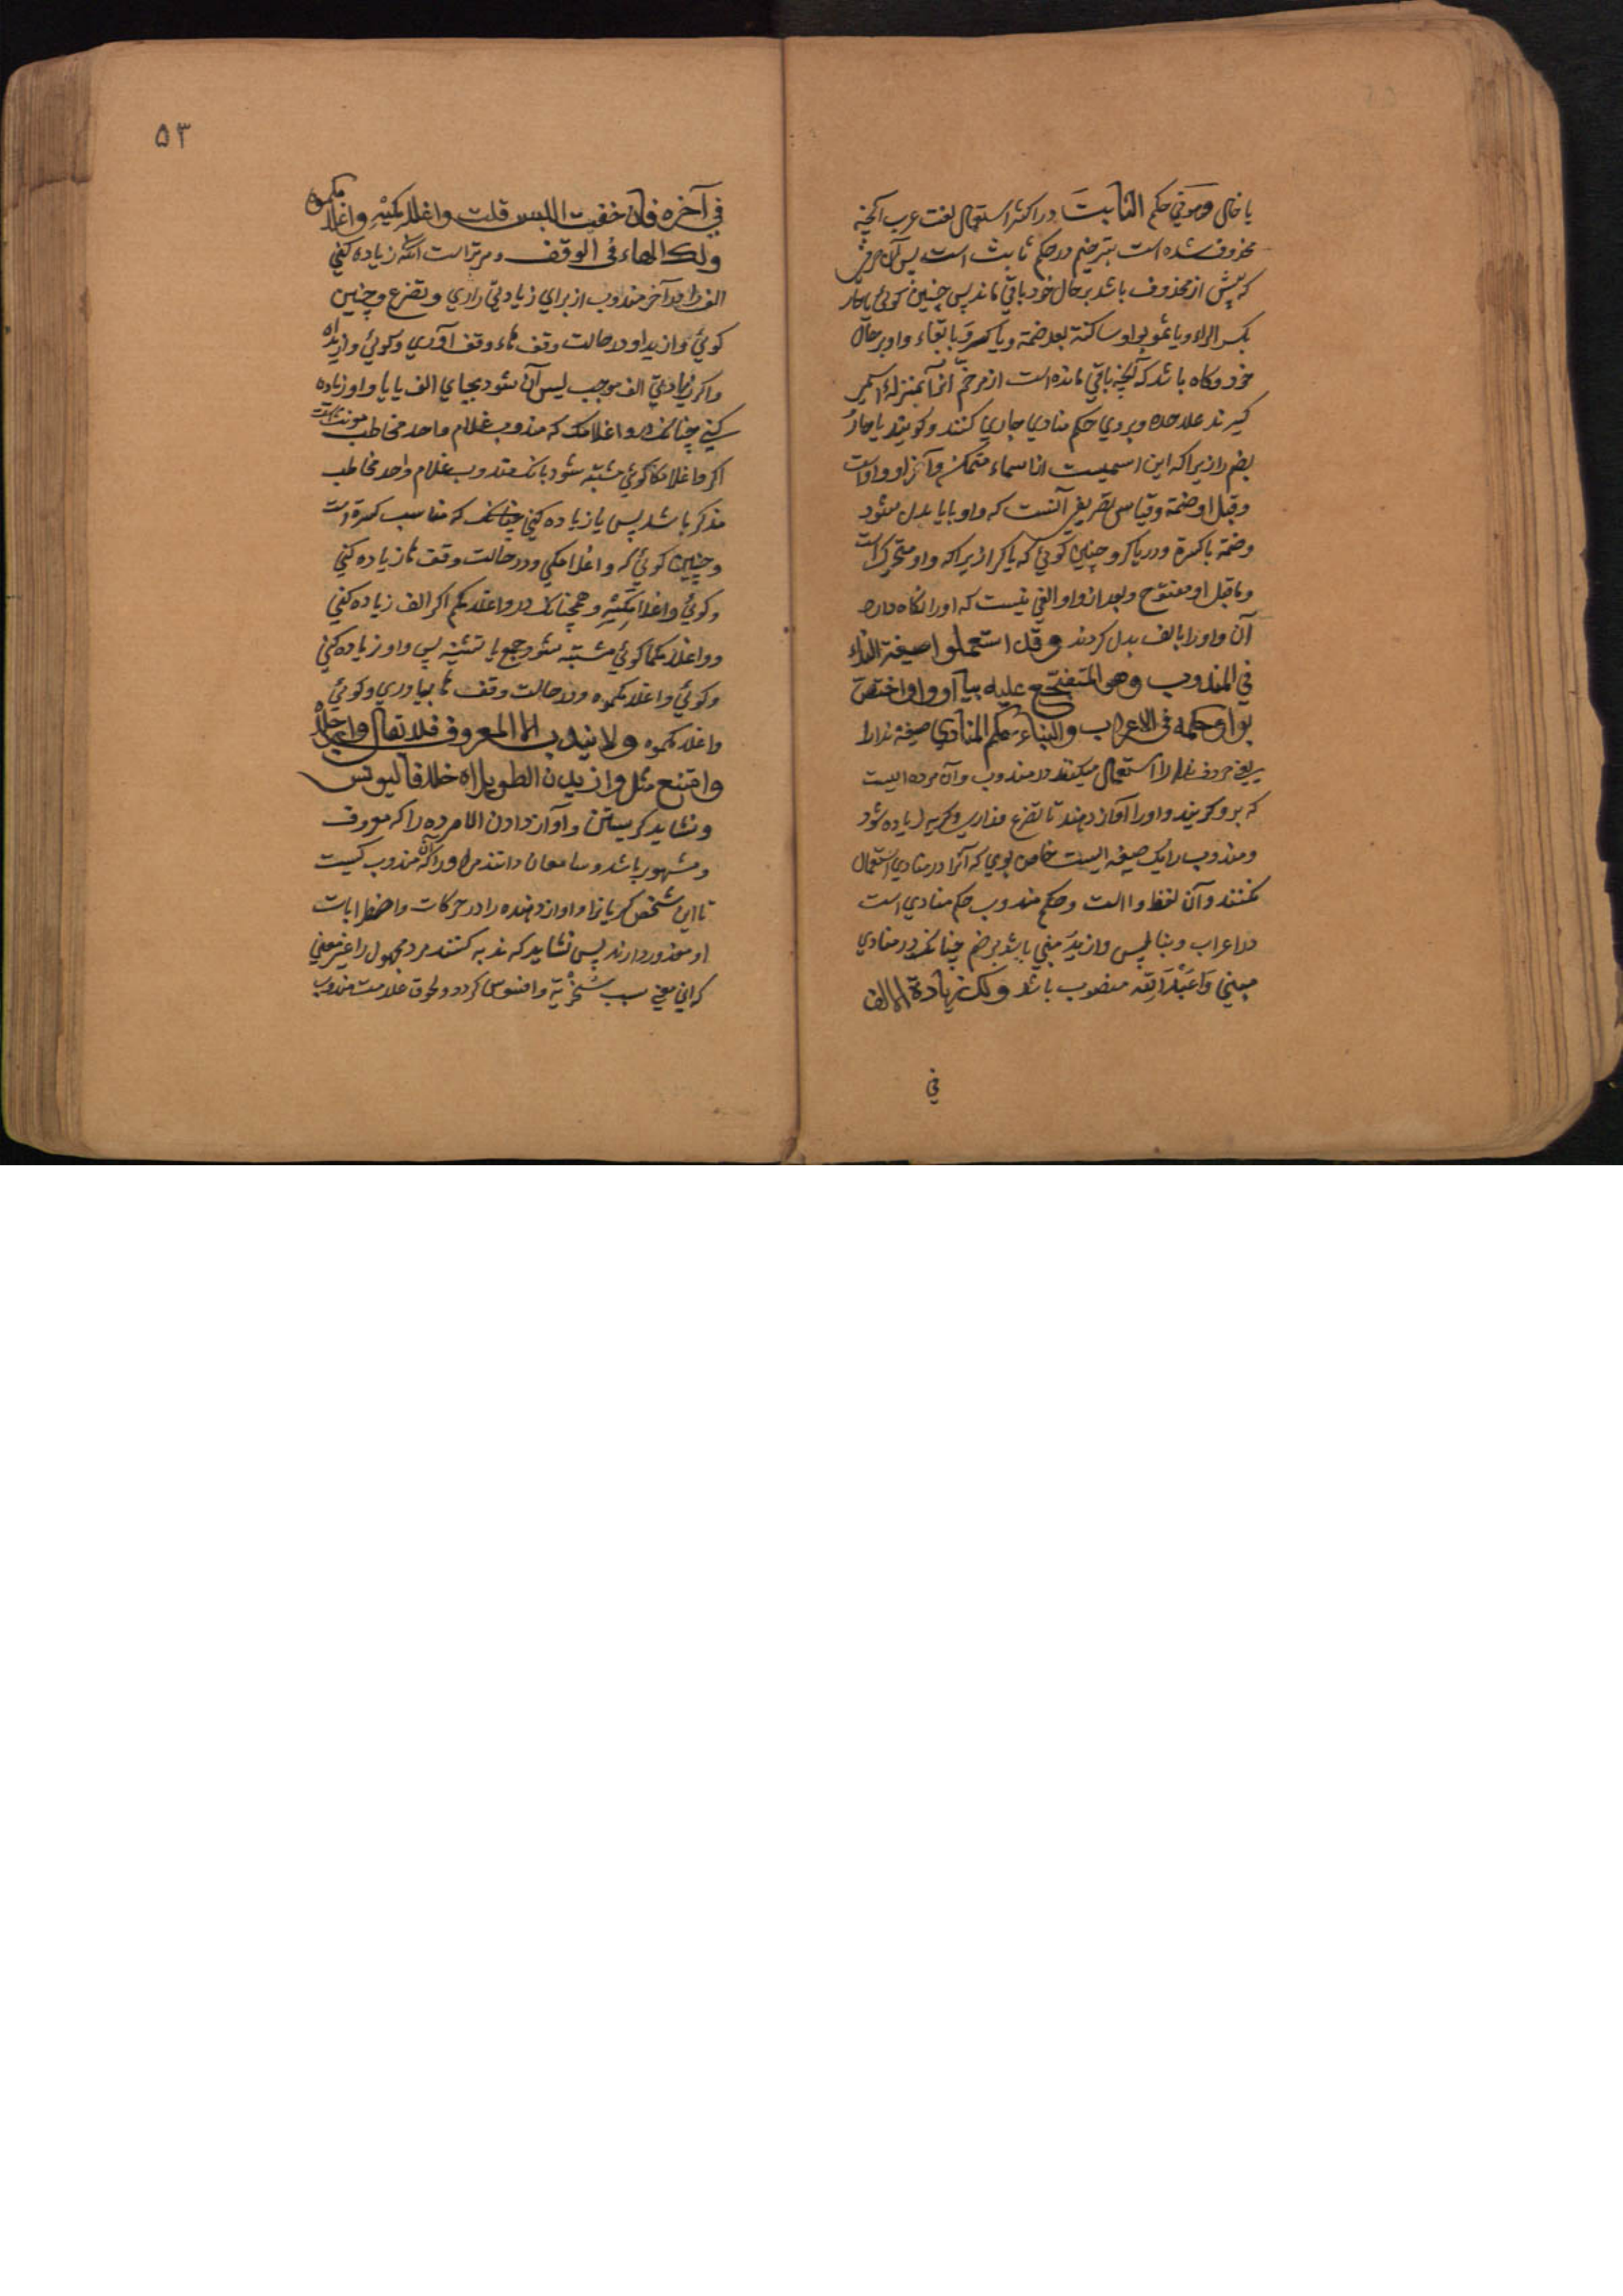 یا خال وهو في حکم الثابت در اکثر استعمال لغت عرب آنچه
محذوف شده است بترخیم در حکم ثابت است پس آن حرف
که پیش از محذوف باشد بر حال خود باقی ماند پس چنین گوئی یا حار
بکسر الراء ویا ثمو بواو ساکنة بعد ضمه ویا کرو با بقاء واو بر حال
خود وگاه باشد که آنچه باقی مانده است از مرخم آنرا بمنزله اسمی
گیرند علاحده وبروي حکم منادي جاري کنند وگویند یا حار
بضم را زیرا که این اسمیست از اسماء متمکن وآخر او واو است
وقبل او ضمة وقیاس تصریفی آنست که واو بایا بدل شود
وضمة با کسرة ودر یا کرو چنین گوئی که یا کرا زیرا که واو متحرک است
وماقبل او مفتوح وبعد از واو الفي نیست که اورا نگاه دارد
آن واو را بالف بدل کردند وقد استعملوا صیغة النداء
في المندوب وهو المتفجع علیه بیا او وا واختص
بوا وحکمه في الاعراب والبناء حکم المنادي صیغهٔ ندا را
یعنی حروف ندا را استعمال میکنند در مندوب وآن مرده ایست
که برو گریند واورا آواز دهند تا تضرع وزاري وگریه زیاده شود
ومندوب را یک صیغه ایست خاص بوي که آنرا در منادي استعمال
نکنند وآن لفظ وا است وحکم مندوب حکم منادي است
در اعراب وبنا پس وازید مبني باشد بر ضم چنانکه در منادي
مبني واعبد الله منصوب باشد ولک زیادة الالف
في
۵۳
في آخره فان خفت اللبس قلت واغلامکیه واغلامکموه
ولک الهاء في الوقف ومر تراست آنکه زیاده کنی
الف را در آخر مندوب از براي زیادتی زاري وتضرع وچنین
گوئي وازیدا ودر حالت وقف هاء وقف آوري وگوئي وازیداه
واگر زیادتی الف موجب لبس آن شود بجاي الف یا یا واو زیاده
کنی چنانکه در واغلامک که مندوب غلام واحد مخاطب مونث است
اگر واغلامکا گوئي مشتبه شود بانکه مندوب غلام واحد مخاطب
مذکر باشد پس یا زیاده کنی چنانکه که مناسب کسرة است
وچنین گوئي که واغلامکي ودر حالت وقف ها زیاده کنی
وگوئي واغلامکیه وهمچنانکه در واغلامکم اگر الف زیاده کنی
وواغلامکما گوئي مشتبه شود جمع با تثنیه پس واو زیاده کنی
وگوئي واغلامکموه ودر حالت وقف ها بیاوري وگوئي
واغلامکموه ولا یندب الا المعروف فلا تقال وارجلاه
وامتنع مثل وازید ن الطویلاه خلافا لیونس
ونشاید گریستن وآواز دادن الا مرده را که معروف
ومشهور باشد وسامعان دانند مر اورا که آن مندوب کیست
تا این شخص گریانرا واواز دهنده را در حرکات واضطرابات
او معذور دارند پس نشاید که ندبه کنند مرد مجهول را غیر معنی
که این معنی سبب سخریه وافسوس گردد ولحوق علامت مندوب